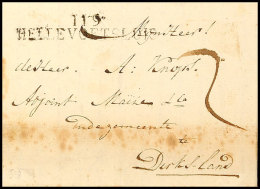 119
HELLEVOETSLUIS
Mijnheer!
de Heer A: Knöps
Adjoint Maire &c
in de gemeente
te
Dirksland